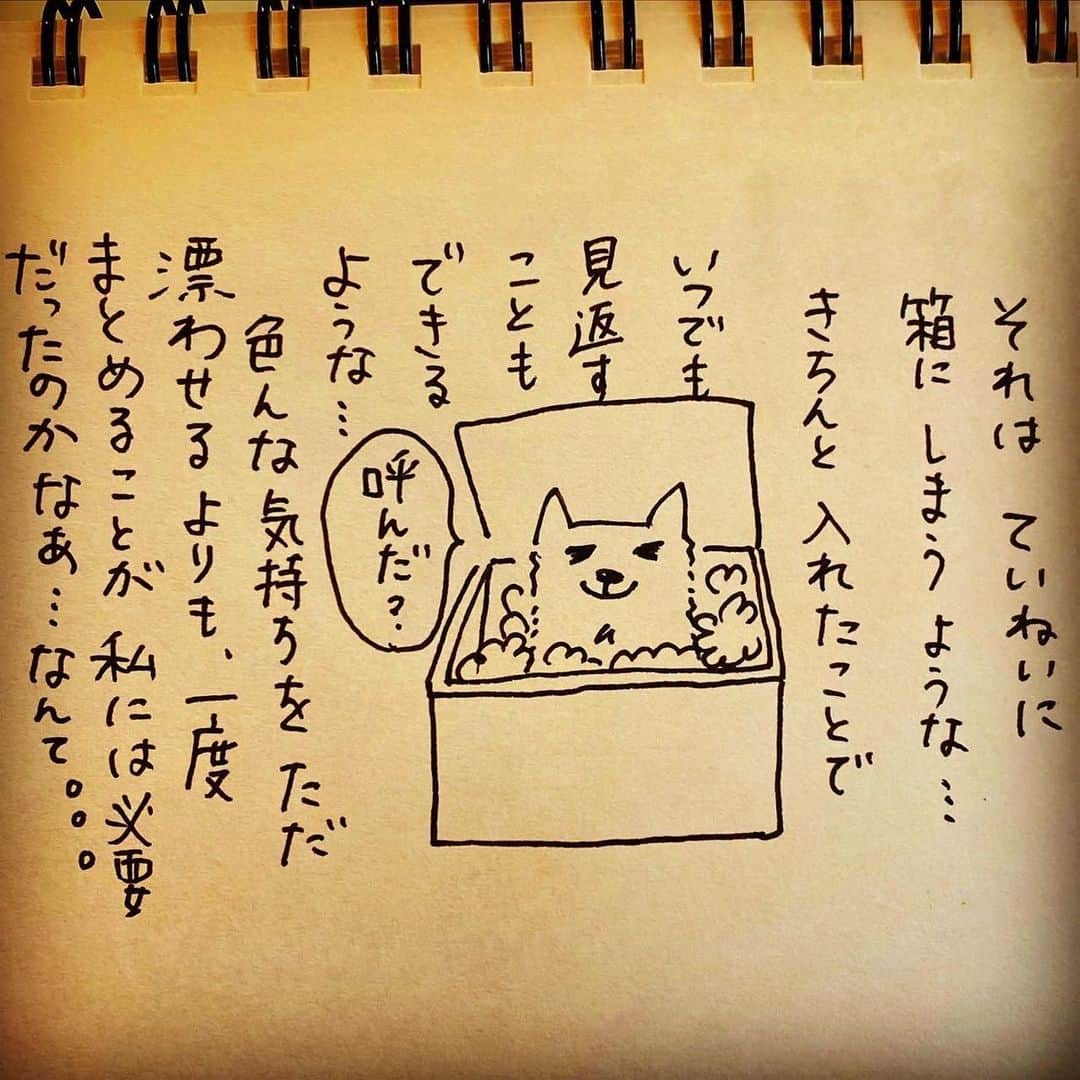 それは ていねいに
箱に しまう ような…
きちんと 入れたことで
いつでも
見返す
ことも
できる
ような…
呼んだ?
色んな気持ちを ただ
漂わせる よりも、一度
まとめることが 私には必要
だったのかなぁ…なんて。。。